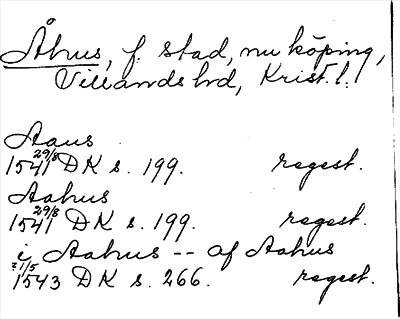 Åhus, f. stad, nu köping,
Villands hd, Krist. l.
Aaus
1541 29/8 DK s. 199. regest.
Aahus
1541 29/8 DK s. 199. regest.
i Aahus -- af Aahus
1543 21/5 DK s. 266. regest.